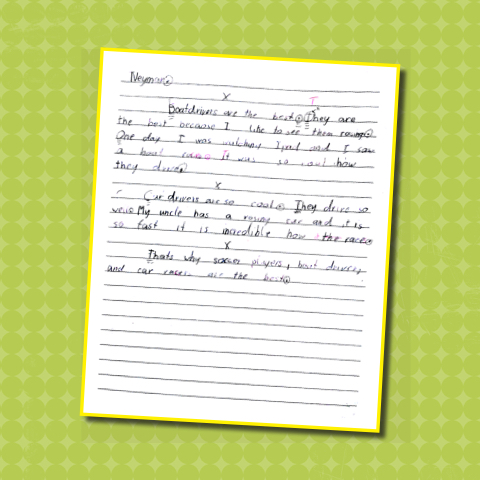 Neymar.
X
Boatdrivers are the best. They are
the best because I like to see them
One day I was and I saw
a boat It was so cool how
they drive.
X
Car drivers are so cool. They drive so
My uncle has a car and it is
so fast it is incredible how the race.
X
Thats why soccer players, boat drivers
and car are the best.